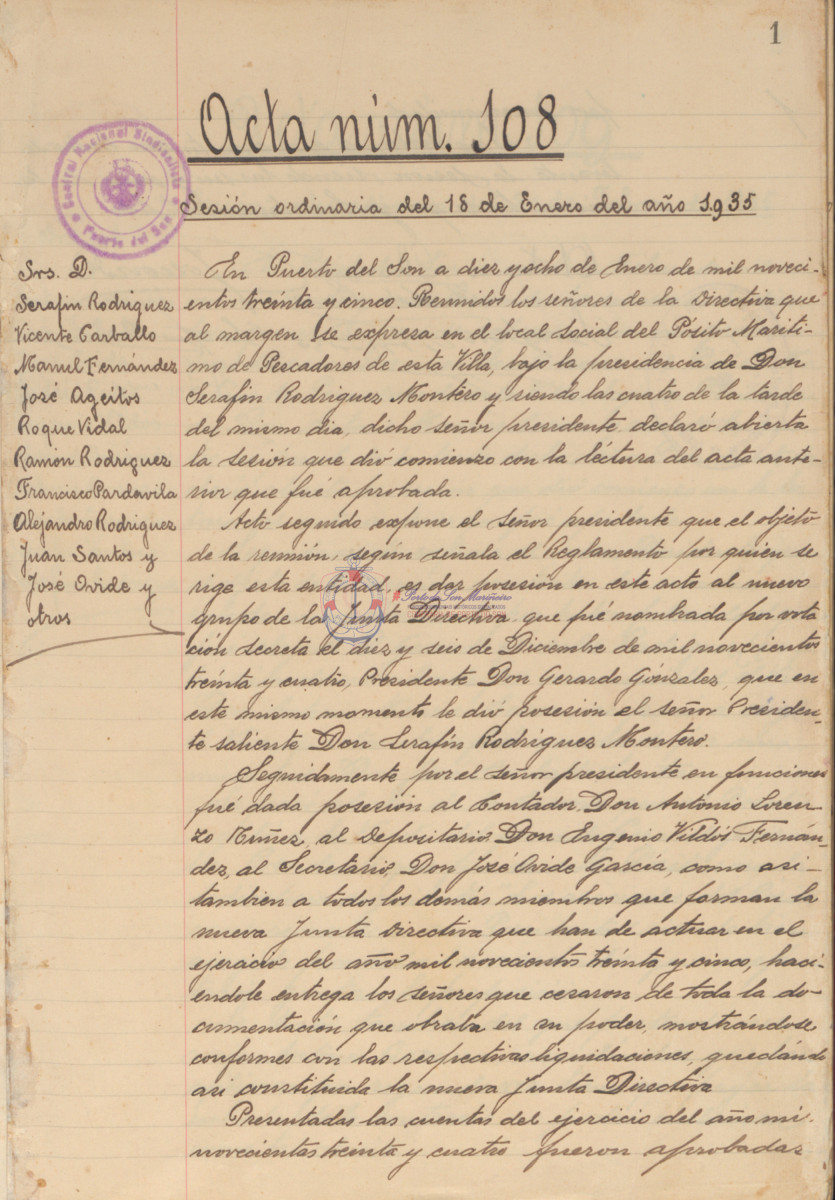 1
Acta núm. 108
Central Nacional Sindicalista
Puerto del Son
Sesión ordinaria del 18 de Enero del año 1.935
Srs. D.
Serafín Rodríguez
Vicente Carballo
Manuel Fernández
José Ageitos
Roque Vidal
Ramón Rodríguez
Francisco Pardavila
Alejandro Rodríguez
Juan Santos y
José Ovide y
otros
En Puerto del Son a diez y ocho de Enero de mil noveci-
entos treinta y cinco. Reunidos los señores de la Directiva que
al margen se expresa en el local social del Pósito Maríti-
mo de Pescadores de esta Villa, bajo la presidencia de Don
Serafín Rodríguez Montero y siendo las cuatro de la tarde
del mismo dia, dicho señor presidente declaró abierta
la sesión que dió comienzo con la léctura del acta ante-
rior que fué aprobada.
Acto seguido expone el señor presidente que el objeto
de la reunión, según señala el Reglamento por quien se
rige esta entidad, es dar posesión en este acto al nuevo
grupo de la Junta Directiva que fué nombrada por vota
ción secreta el diez y seis de Diciembre de mil novecientos
treinta y cuatro, Presidente Don Gerardo González, que en
este mismo momento le dió posesión el señor Presiden-
te saliente Don Serafín Rodríguez Montero.
Seguidamente por el señor presidente en funciones
fué dada posesión al Contador, Don Antonio Loren-
zo Nuñez, al Depositario, Don Eugenio Vildós Fernán-
dez, al Secretario, Don José Ovide García, como asi-
tambien a todos los demás miembros que forman la
nueva Junta Directiva que han de actuar en el
ejercicio del año mil novecientos treinta y cinco, haci-
éndole entrega los señores que cesaron de toda la do-
cumentación que obraba en su poder, mostrándose
conformes con las respectivas liquidaciones, quedándo
asi constituida la nueva Junta Directiva
Presentadas las cuentas del ejercicio del año mi
novecientas treinta y cuatro fueron aprobadas
Porto do Son Mariñeiro